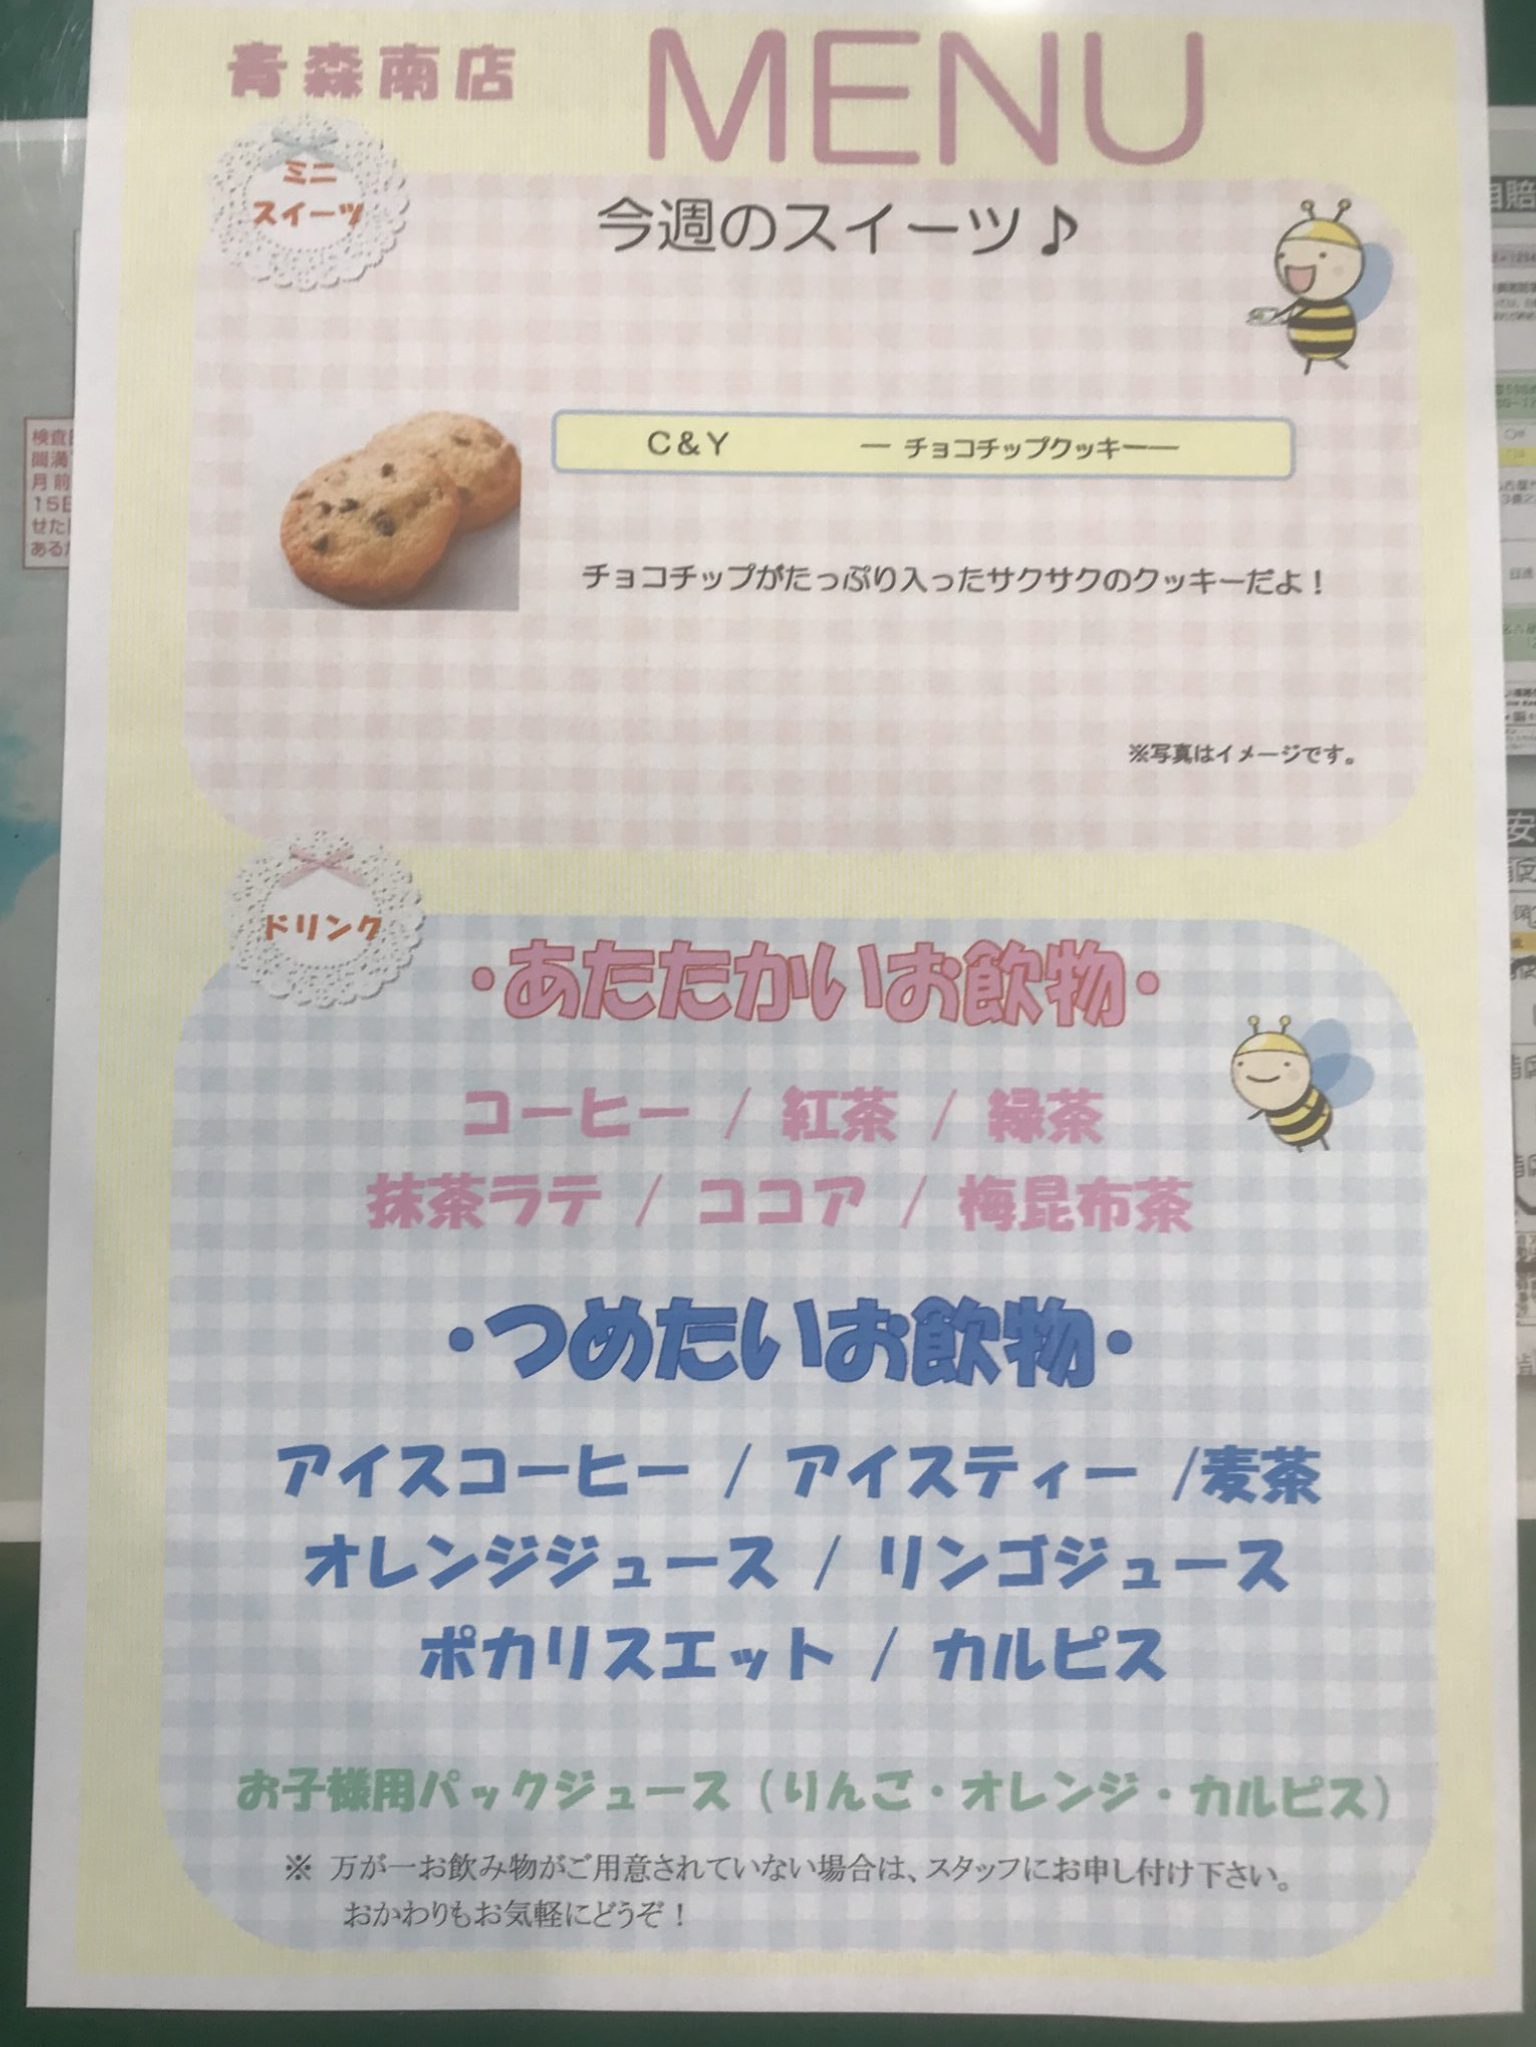 青森南店
MENU
ミニ
スイーツ
今週のスイーツ♪
C&Y ― チョコチップクッキー―
チョコチップがたっぷり入ったサクサクのクッキーだよ！
※写真はイメージです。
ドリンク
・あたたかいお飲物・
コーヒー / 紅茶 / 緑茶
抹茶ラテ / ココア / 梅昆布茶
・つめたいお飲物・
アイスコーヒー / アイスティー /麦茶
オレンジジュース / リンゴジュース
ポカリスエット / カルピス
お子様用パックジュース（りんご・オレンジ・カルピス）
※ 万が一お飲み物がご用意されていない場合は、スタッフにお申し付け下さい。
おかわりもお気軽にどうぞ！
検査
間満
月前
15日
せた
ある